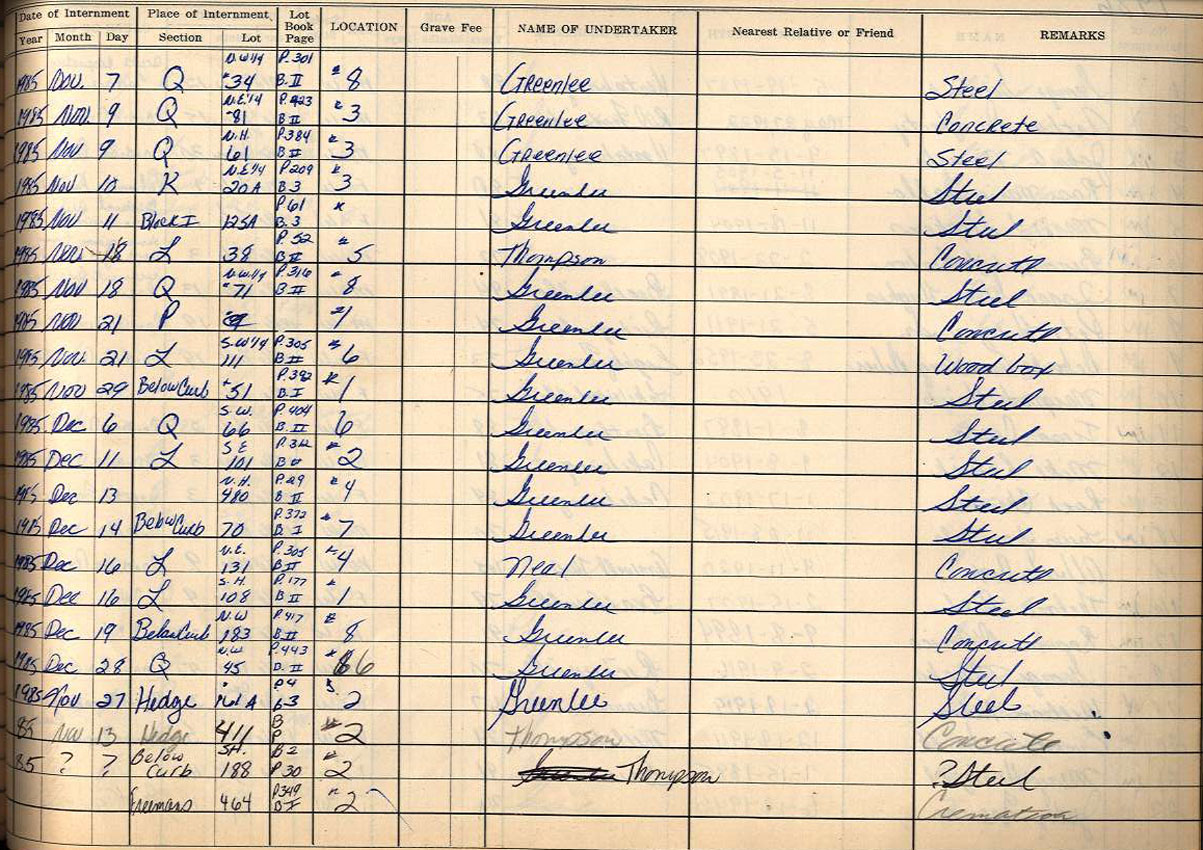 Date of Internment Place of Internment Lot Book Page LOCATION Grave Fee NAME OF UNDERTAKER Nearest Relative or Friend REMARKS
Year Month Day Section Lot
N.W¼ P.301
1985 Nov. 7 Q #34 B.II #8 Greenlee Steel
N.E.¼ P.423
1985 Nov. 9 Q #81 B II #3 Greenlee Concrete
N.H. P.384
1985 Nov 9 Q 61 B II #3 Greenlee Steel
N.E¼ P.209
1985 Nov 10 K 20A B.3 #3 Greenlee Steel
P.61
1985 Nov 11 Block I 125A B.3 # Greenlee Steel
P.52
1985 Nov 18 L 38 B II #5 Thompson Concrete
N.W.¼ P.316
1985 Nov 18 Q #71 B II #8 Greenlee Steel
1985 Nov 21 P #1 Greenlee Concrete
S.W¼ P.305
1985 Nov. 21 L 111 B II #6 Greenlee Wood box
P.392
1985 Nov 29 Below Curb #51 B.I #1 Greenlee Steel
S.W. P.404
1985 Dec 6 Q 66 B.II #6 Greenlee Steel
S E
1985 Dec 11 L 101 B II #2 Greenlee Steel
N.H. P.29
1985 Dec 13 480 B II #4 Greenlee Steel
P.372
1985 Dec 14 Below Curb 70 B.I #7 Greenlee Steel
N.E. P.305
1985 Dec 16 L 131 B II #4 Neal Concrete
S.H. P.177
1985 Dec 16 L 108 B II #1 Greenlee Steel
N.W P.417
1985 Dec 19 Below Curb 183 B.II #8 Greenlee Concrete
N.W. P.443
1985 Dec 28 Q 45 B.II #6 Greenlee Steel
P4
1985 Nov 27 Hedge A B3 2 Greenlee Steel
B
85 Nov 13 Hedge 411 P #2 Thompson Concrete
Below S.H. B2
85 ? ? Curb 188 P.30 #2 Greenlee Thompson ?Steel
P349
Freemans 464 B-I "2 Cremation